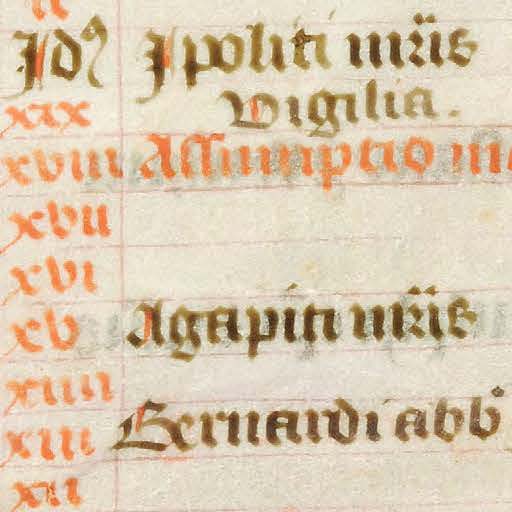 Id9 Ipoliti mris
xix Vigilia.
xviii Assumptio
xvii
xvi
xv Agapiti mris
xiiii
xiii Bernardi abb
xii